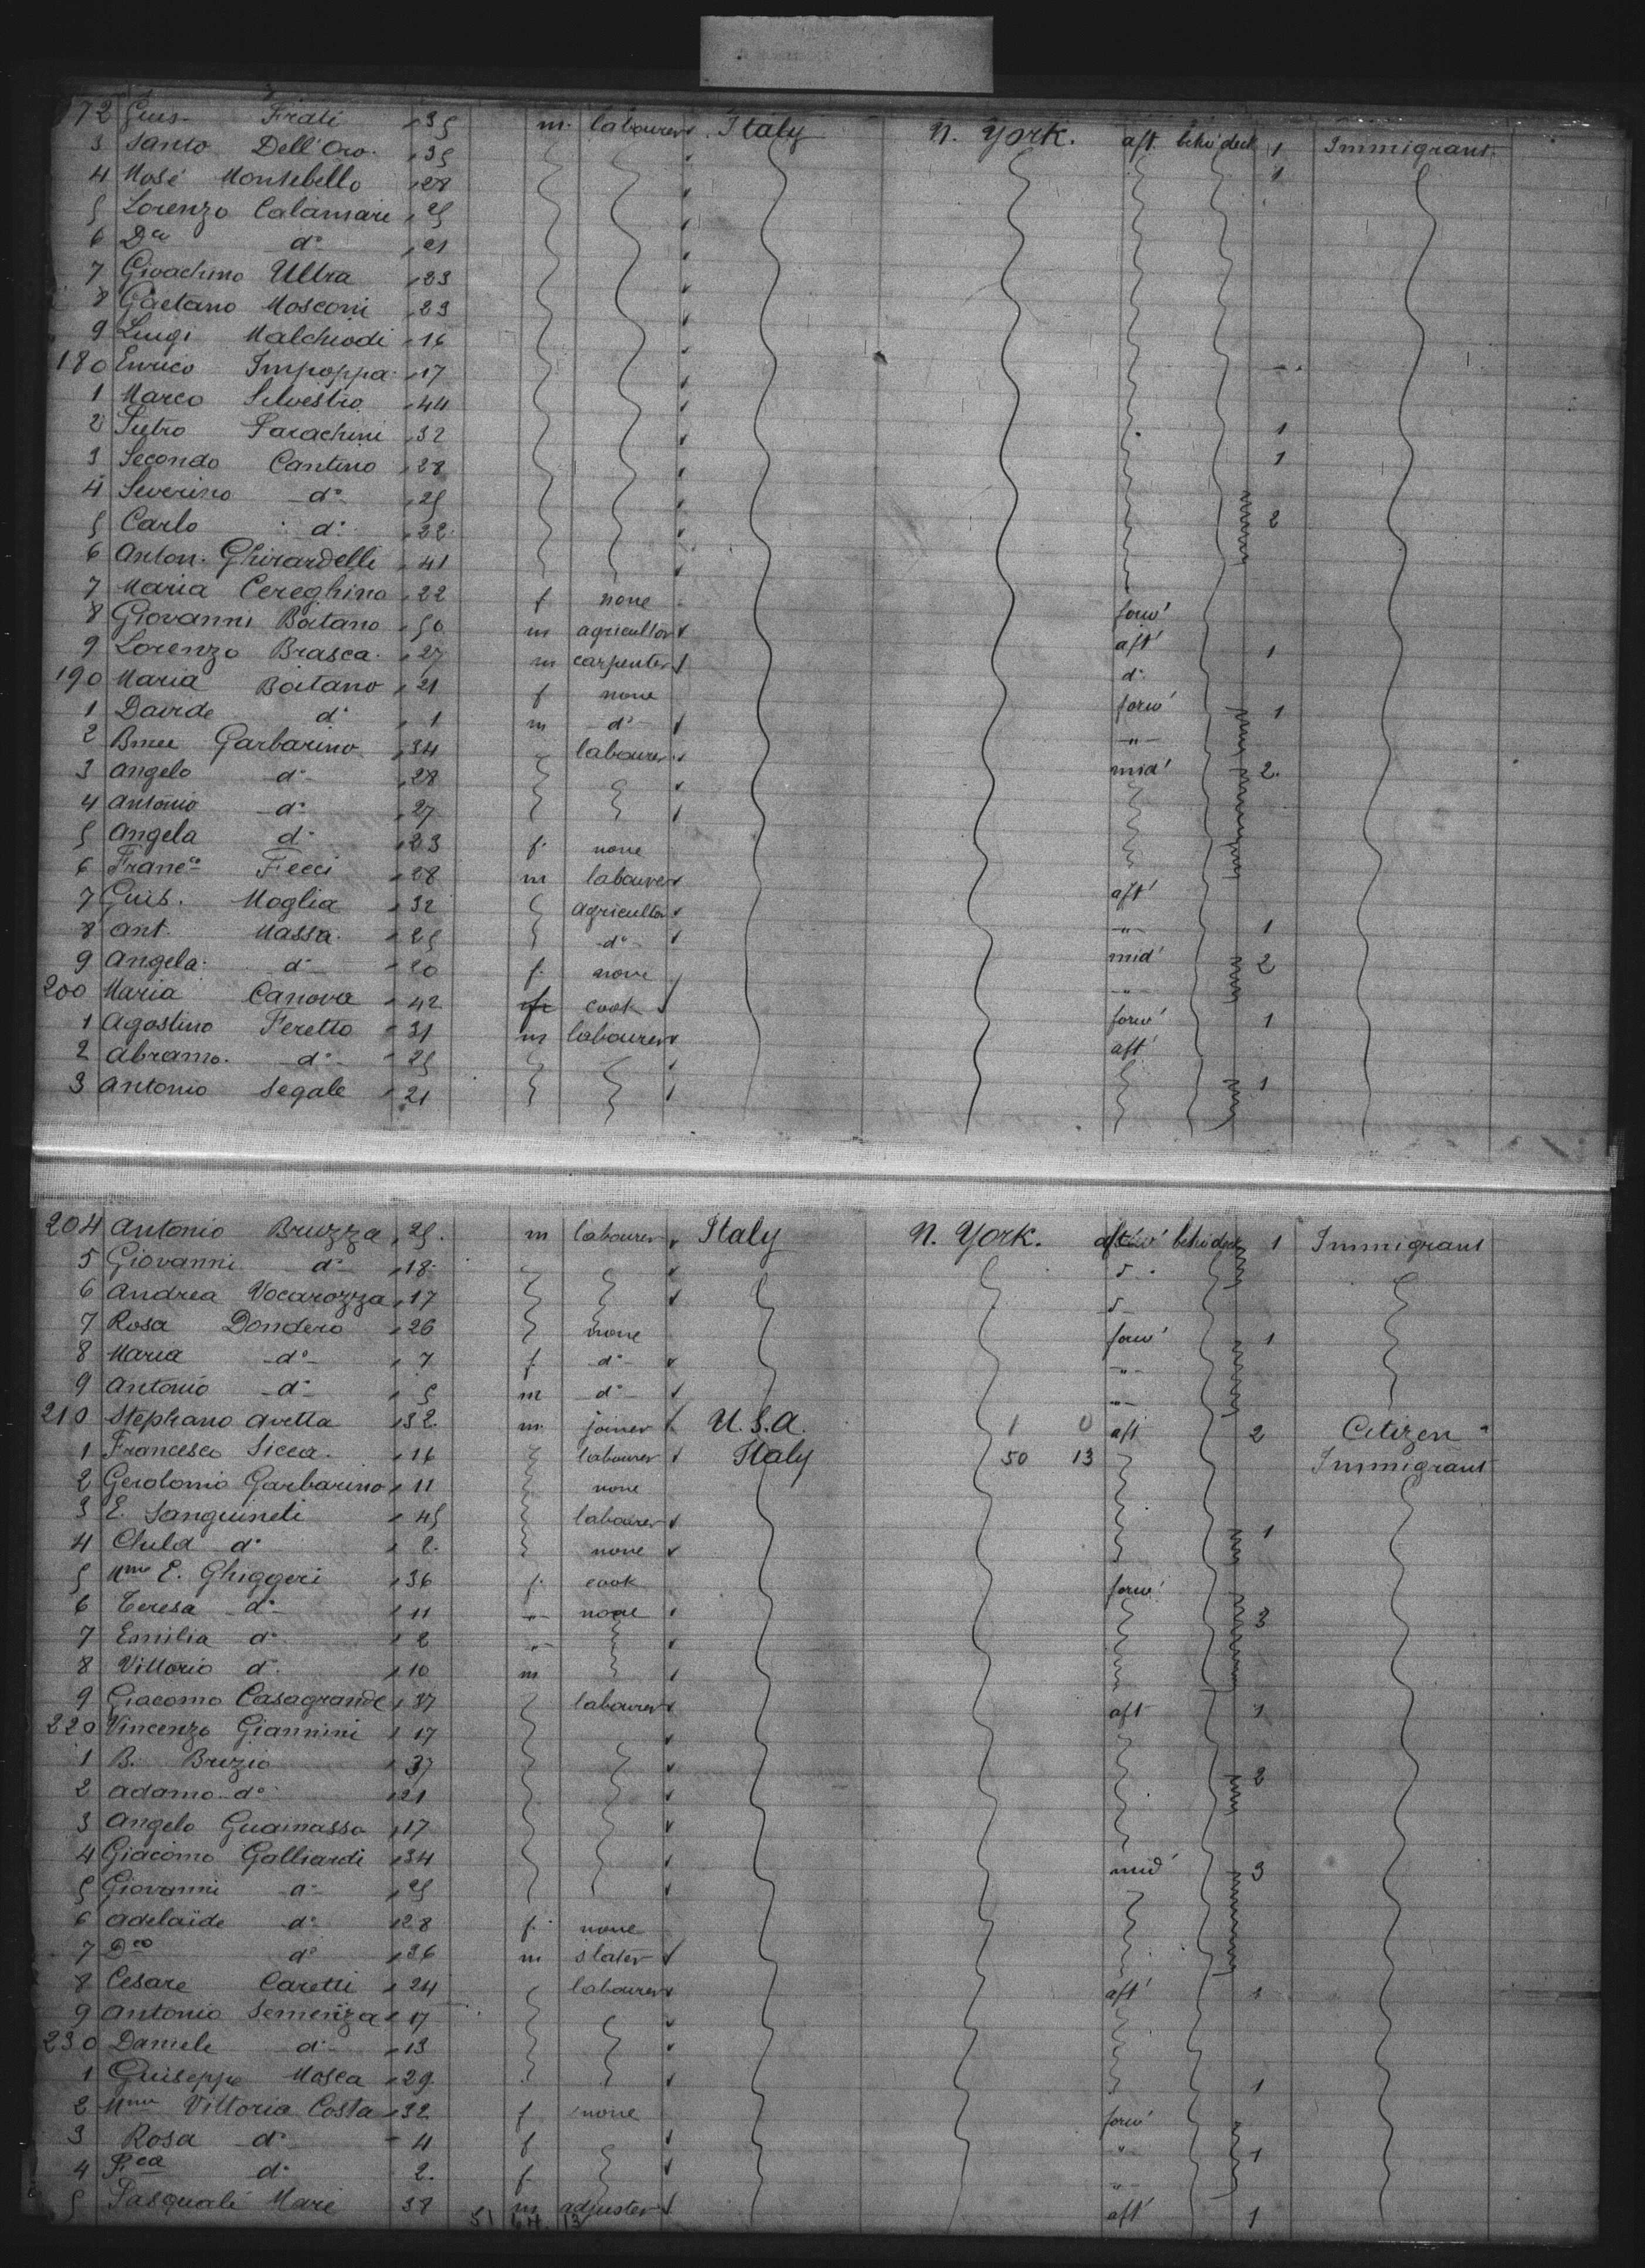 172 Gius. Frati 35 m. labourer Italy N. York. aft. betw deck 1 Immigrant
3 Santo Dell'Oro 35 1
4 Mosé Montebello 28
5 Lorenzo Calamari 25
6 Dco do 21
7 Gioachino Ultra 23
8 Gaetano Mosconi 23
9 Luigi Malchiodi 16
180 Enrico Impoppa 17
1 Marco Silvestro 44
2 Pietro Parachini 32 1
3 Secondo Cantino 28 1
4 Severino do 25 2
5 Carlo do 22
6 Anton. Ghirardelli 41
7 Maria Cereghino 22 f none forw'
8 Giovanni Boitano 50 m agricultor aft' 1
9 Lorenzo Brasca 27 m carpenter do
190 Maria Boitano 21 f none forw' 1
1 Davide do 1 m do "
2 Bmeu Garbarino 34 labourer mid' 2.
3 Angelo do 28
4 Antonio do 27
5 Angela do 23 f. none
6 Franco Fecci 28 m labourer aft'
7 Guis. Moglia 32 agricultor " 1
8 Ant. Massa 25 do mid' 2
9 Angela do 20 f. none "
200 Maria Canova 42 f cook forw' 1
1 Agostino Feretto 31 m labourer aft'
2 Abramo do 25
3 Antonio Segale 21 1
204 Antonio Bruzza 25. m labourer Italy N. York. aft betw deck 1 Immigrant
5 Giovanni do 18
6 Andrea Vocarozza 17
7 Rosa Dondero 26 none forw' 1
8 Maria do 7 f. do "
9 Antonio do 5 m do "
210 Stephano Avetta 32 m. joiner U.S.A. 1 0 aft 2 Citizen
1 Francesco Sicca 16 labourer Italy 50 13 Immigrant
2 Gerolomo Garbarino 11 none
3 E. Sanguineti 45 labourer 1
4 Child do 2. none
5 Mme E. Ghiggeri 36 f. cook forw'
6 Teresa do 11 " none 3
7 Emilia do 2 "
8 Vittorio do 10 m
9 Giacomo Casagrande 37 labourer aft 1
220 Vincenzo Giannini 17
1 B. Bruzio 37 2
2 Adamo do 21
3 Angelo Guainasso 17
4 Giacomo Galliardi 34 mid' 3
5 Giovanni do 25
6 Adelaide do 28 f. none
7 Dco do 36 m slater
8 Cesare Caretti 24 labourer aft' 1
9 Antonio Semenza 17
230 Daniele do 13
1 Guiseppe Mosca 29 1
2 Mme Vittoria Costa 32 f none forw'
3 Rosa do 4 f " 1
4 Fca do 2. f "
5 Pasquale Mari 38 m adjuster aft' 1
51 64. 13